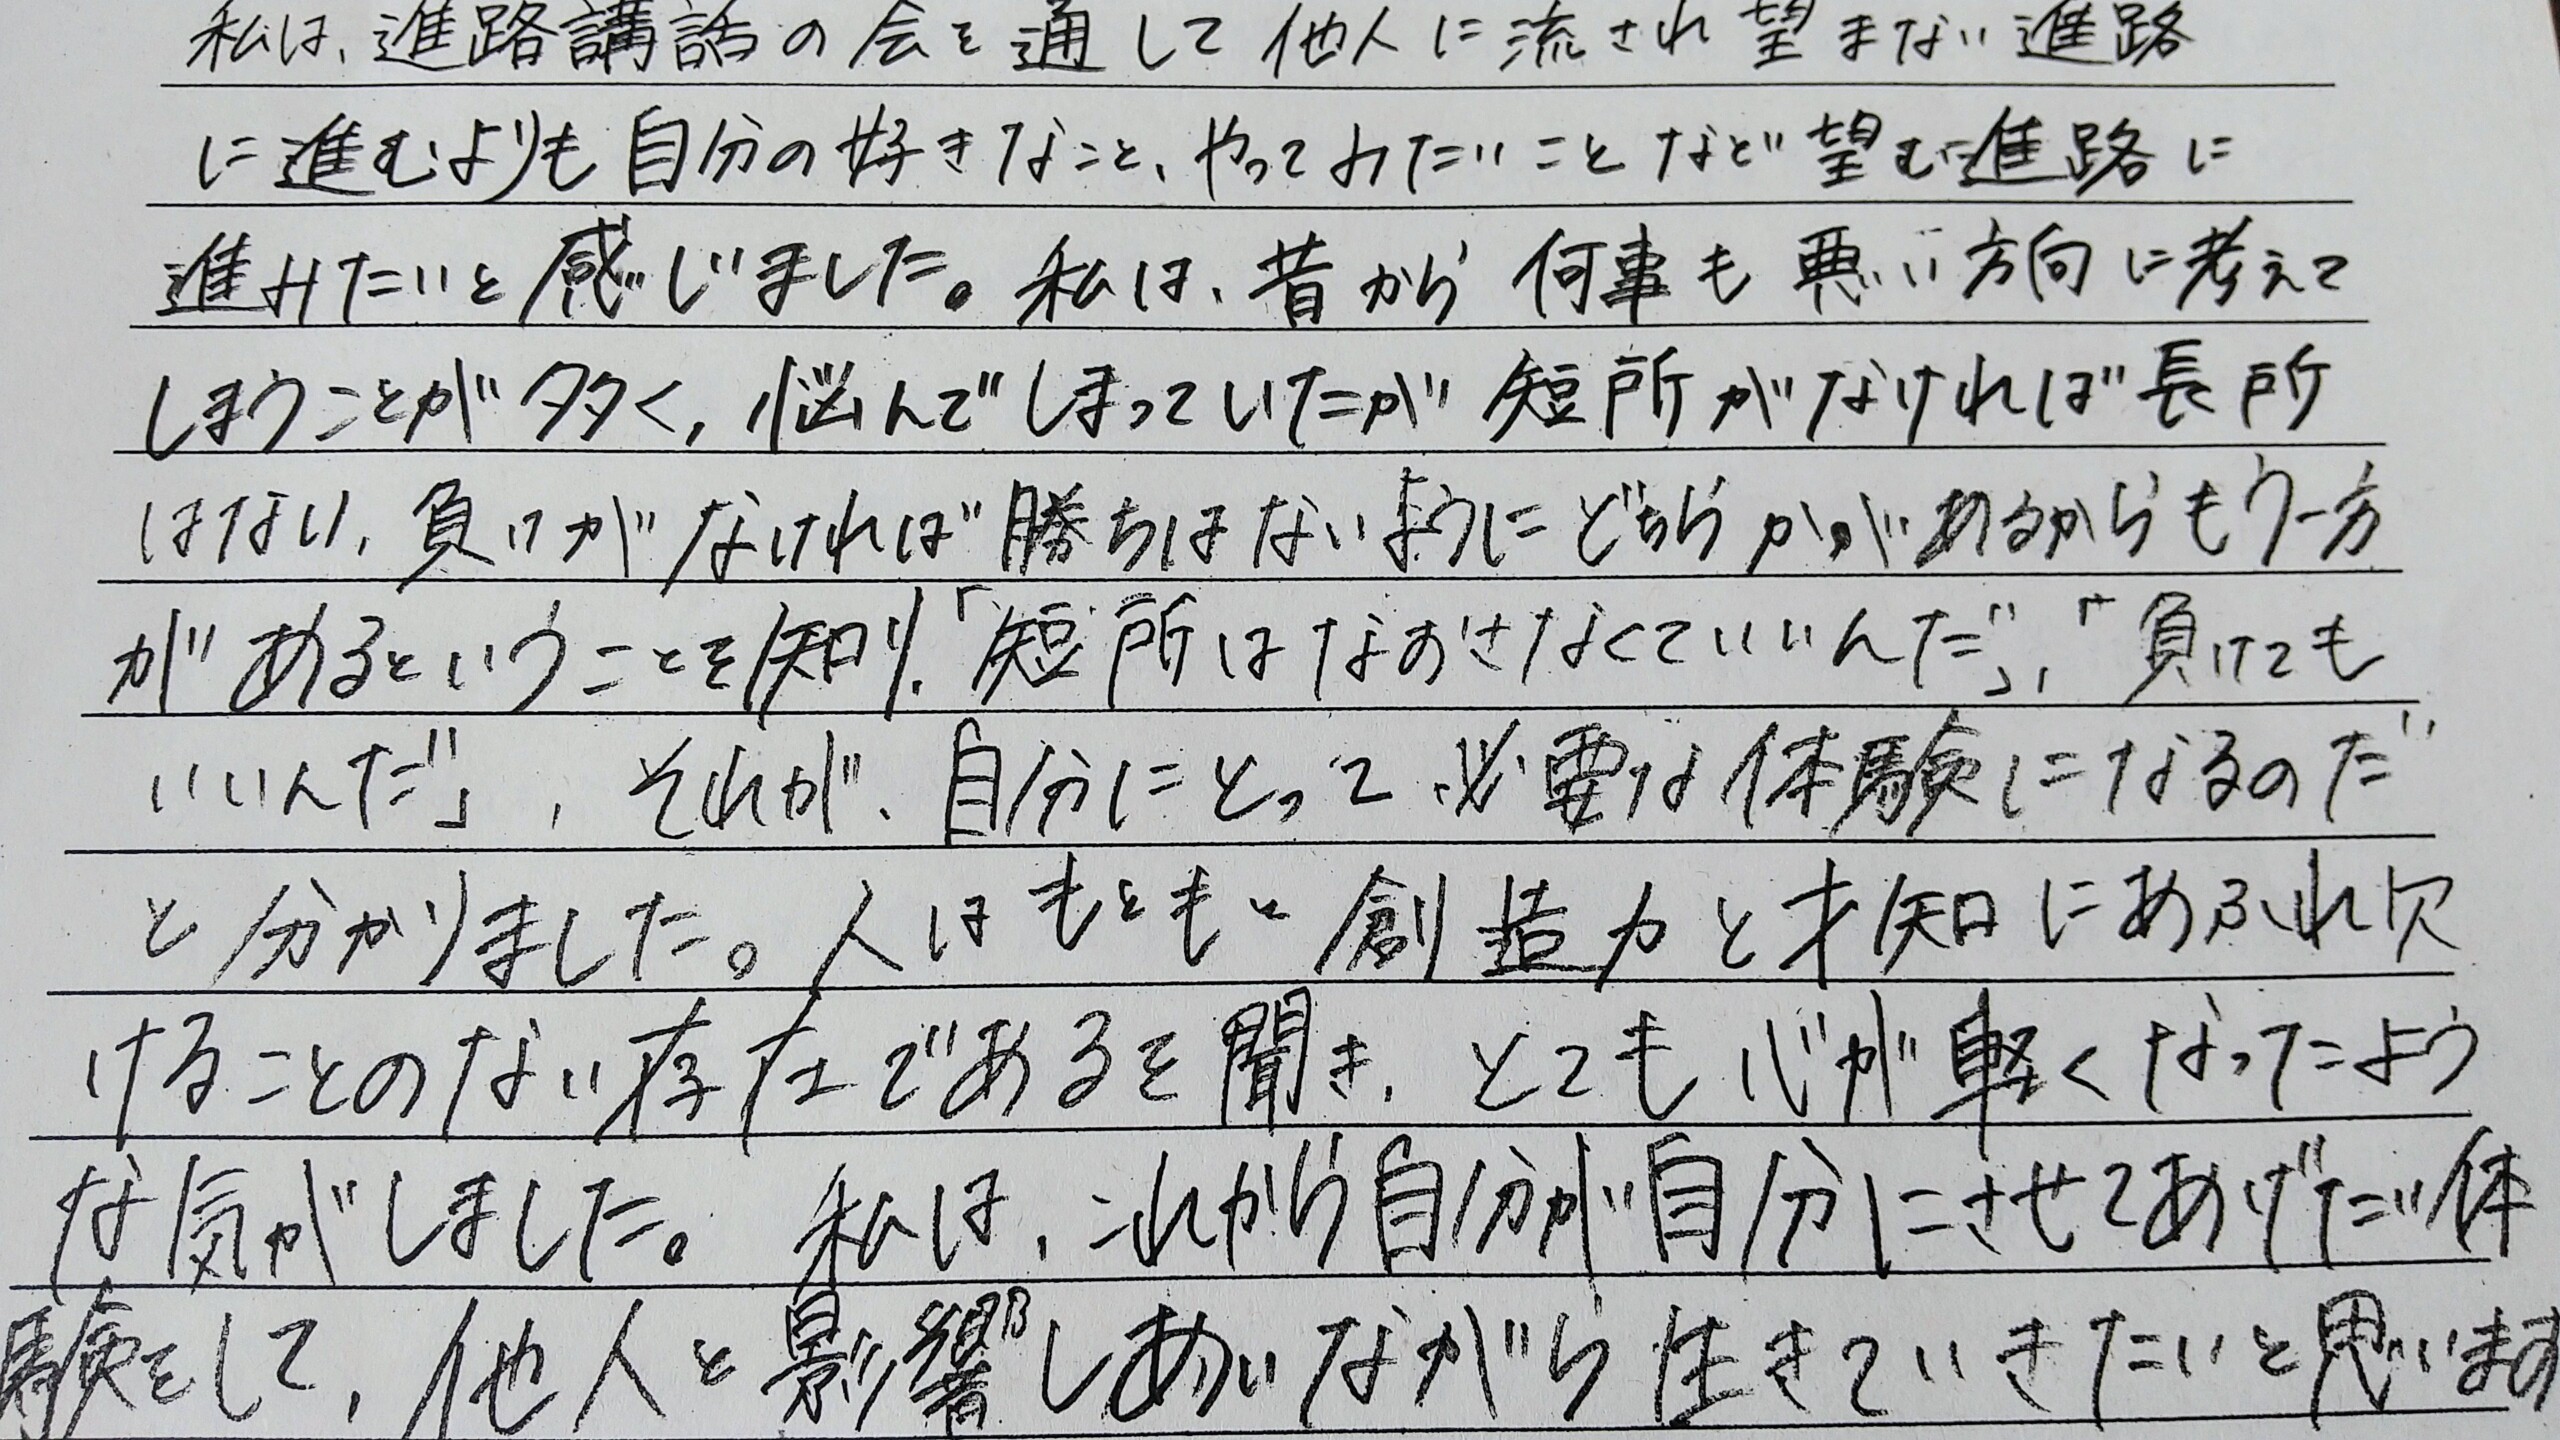 私は、進路講話の会を通して他人に流され望まない進路
に進むよりも自分の好きなこと、やってみたいことなど望む進路に
進みたいと感じました。私は、昔から何事も悪い方向に考えて
しまうことが多く、悩んでしまっていたが短所がなければ長所
はない、負けがなければ勝ちはないようにどちらかがあるからもう一方
があるということを知り、「短所はなおさなくていいんだ」、「負けても
いいんだ」、それが、自分にとって必要な体験になるのだ
と分かりました。人はもともと創造力と才知にあふれ欠
けることのない存在であるを聞き、とても心が軽くなったよう
な気がしました。私は、これから自分が自分にさせてあげたい体
験をして、他人と影響しあいながら生きていきたいと思います